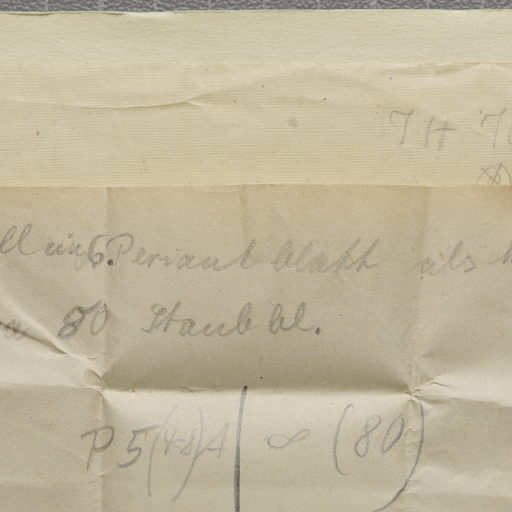 7 H 7
ll ein 6. Periantblatt als
80 Staubbl.
P 5(4-8) A ∞ (80)